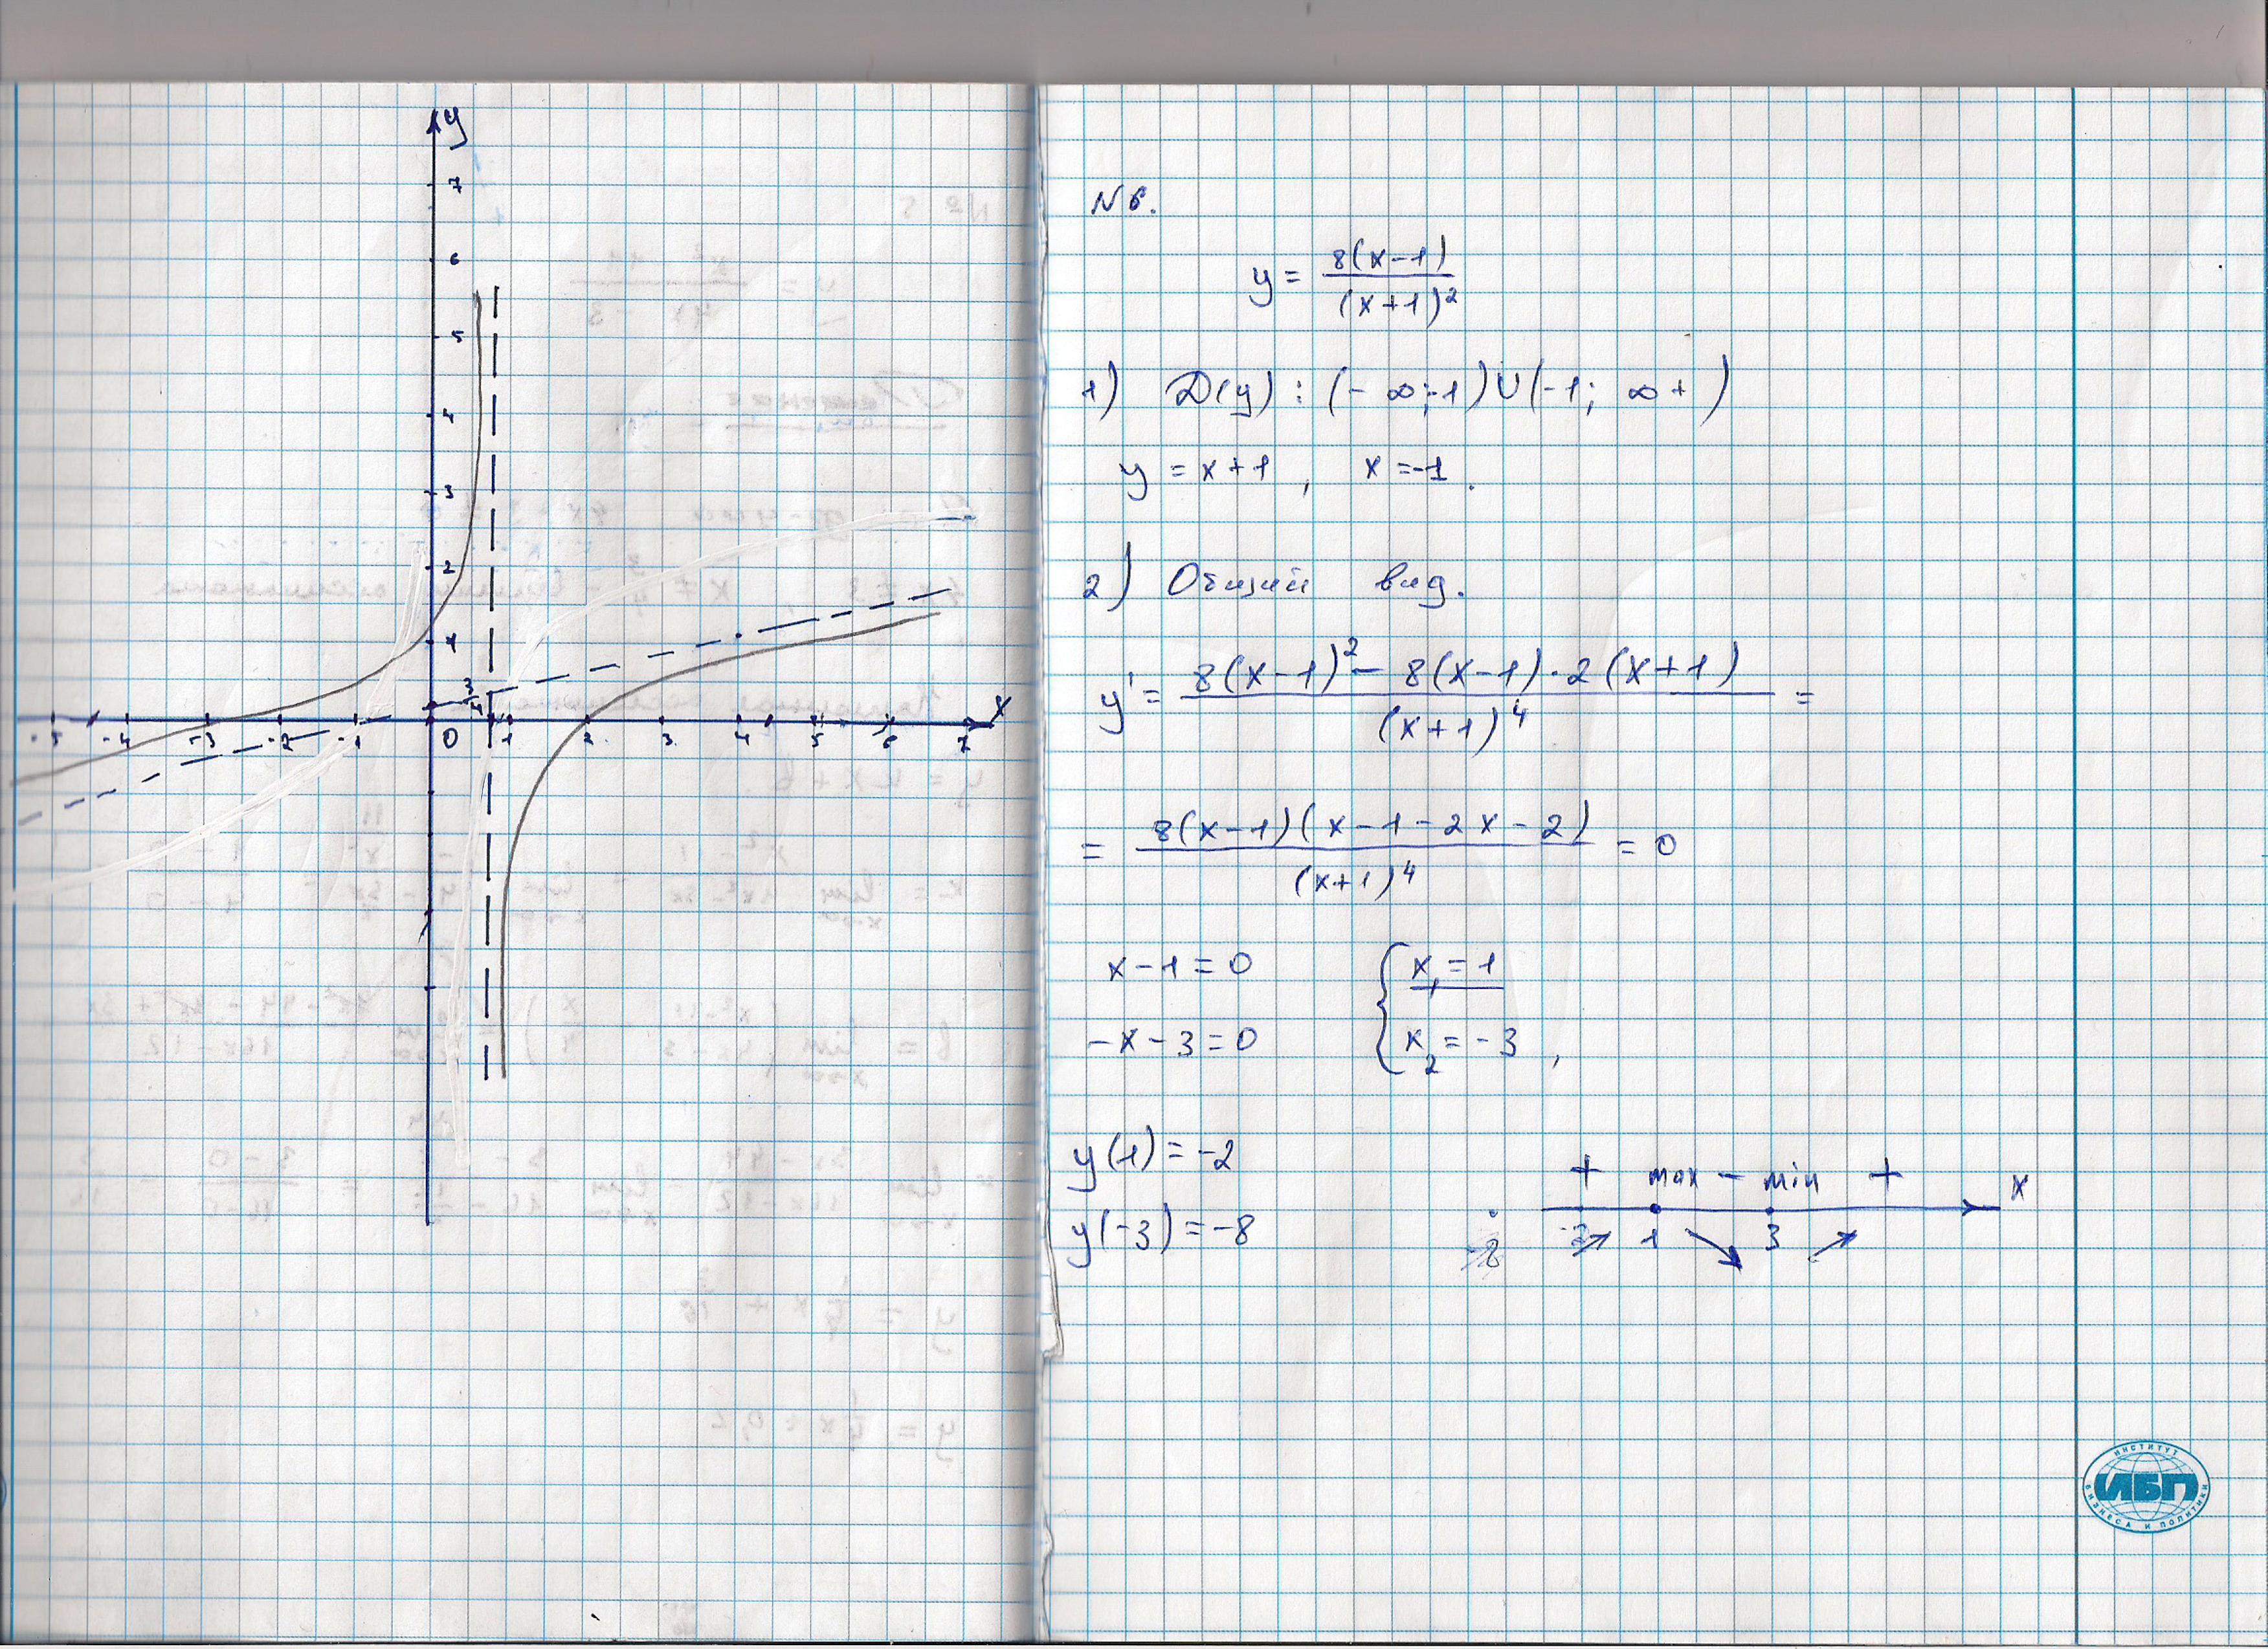 y
7
6
5
4
3
2
1
3/4
-5 -4 -3 -2 -1 0 1 2 3 4 5 6 7 x
N 6.
y = 8(x-1) / (x+1)²
1) D(y) : (- ∞;-1) U (-1; ∞ + )
y = x + 1 , x = -1 .
2) Общий вид.
y' = (8(x-1)² - 8(x-1)·2(x+1)) / (x+1)⁴ =
= 8(x-1)(x-1-2x-2) / (x+1)⁴ = 0
x-1=0 { x₁ = 1
-x-3=0 x₂ = -3 ,
y(1) = -2
+ max - min + x
y(-3) = -8
1 3
ИНСТИТУТ
ИБП
БИЗНЕСА И ПОЛИТИКИ